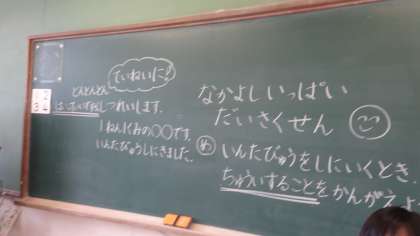 ていねいに!
とんとんとん
しつれいします。
1ねん1くみの〇〇です。
いんたびゅうしにきました。
なかよしいっぱい
だいさくせん
め いんたびゅうをしにいくとき、
ちゅういすることをかんがえよ